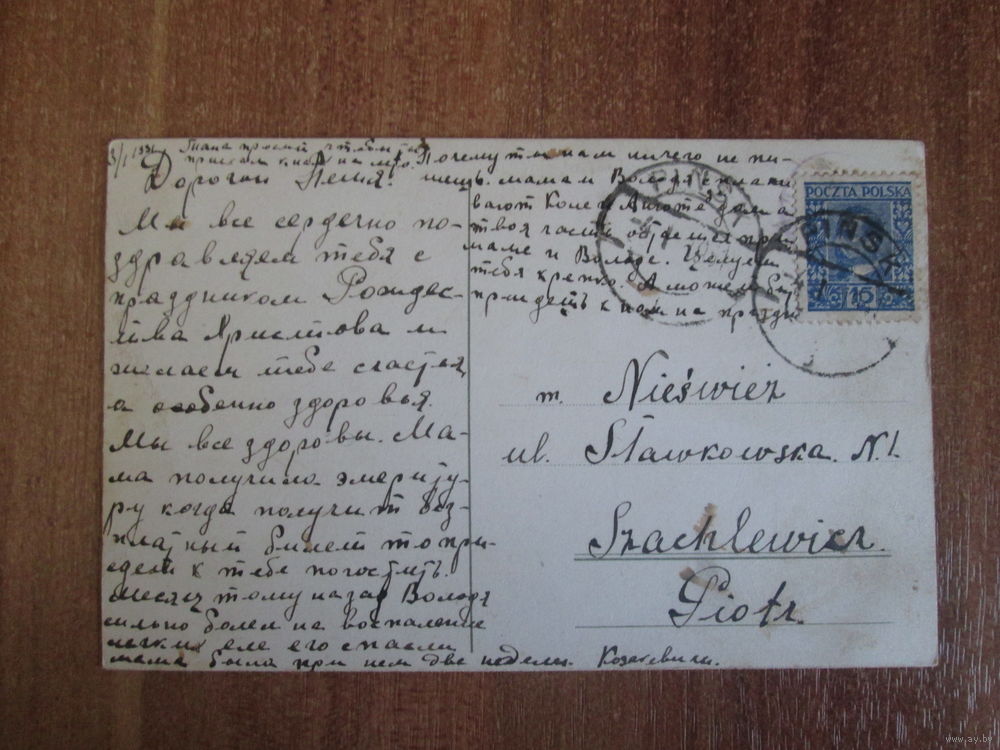 3/I 1931
Диана просит чтобы ты
приехал к ней на
Дорогой Петя!
Мы все сердечно по-
здравляем тебя с
праздником Рождес-
тва Христова и
желаем тебе счастья,
а особенно здоровья.
Мы все здоровы. Ма-
ма получила эмериту-
ру когда получит без-
платный билет то при-
едет к тебе погостить.
Месяц тому назад Володя
сильно болел на воспаление
легких еле его спасли
мама была при нем две недели. Козакевичи.
Почему ты нам ничего не пи-
шешь. мама и Володя
вают Коле и
твоя
маме и Володе. Целуем
тебя крепко. А может бы
приедешь к нам на праздн
POCZTA POLSKA
15
PINSK
PINSK
m. Nieświez
ul. Sławkowska. N.1.
Szachlewicz.
Piotr.
www.ay.by